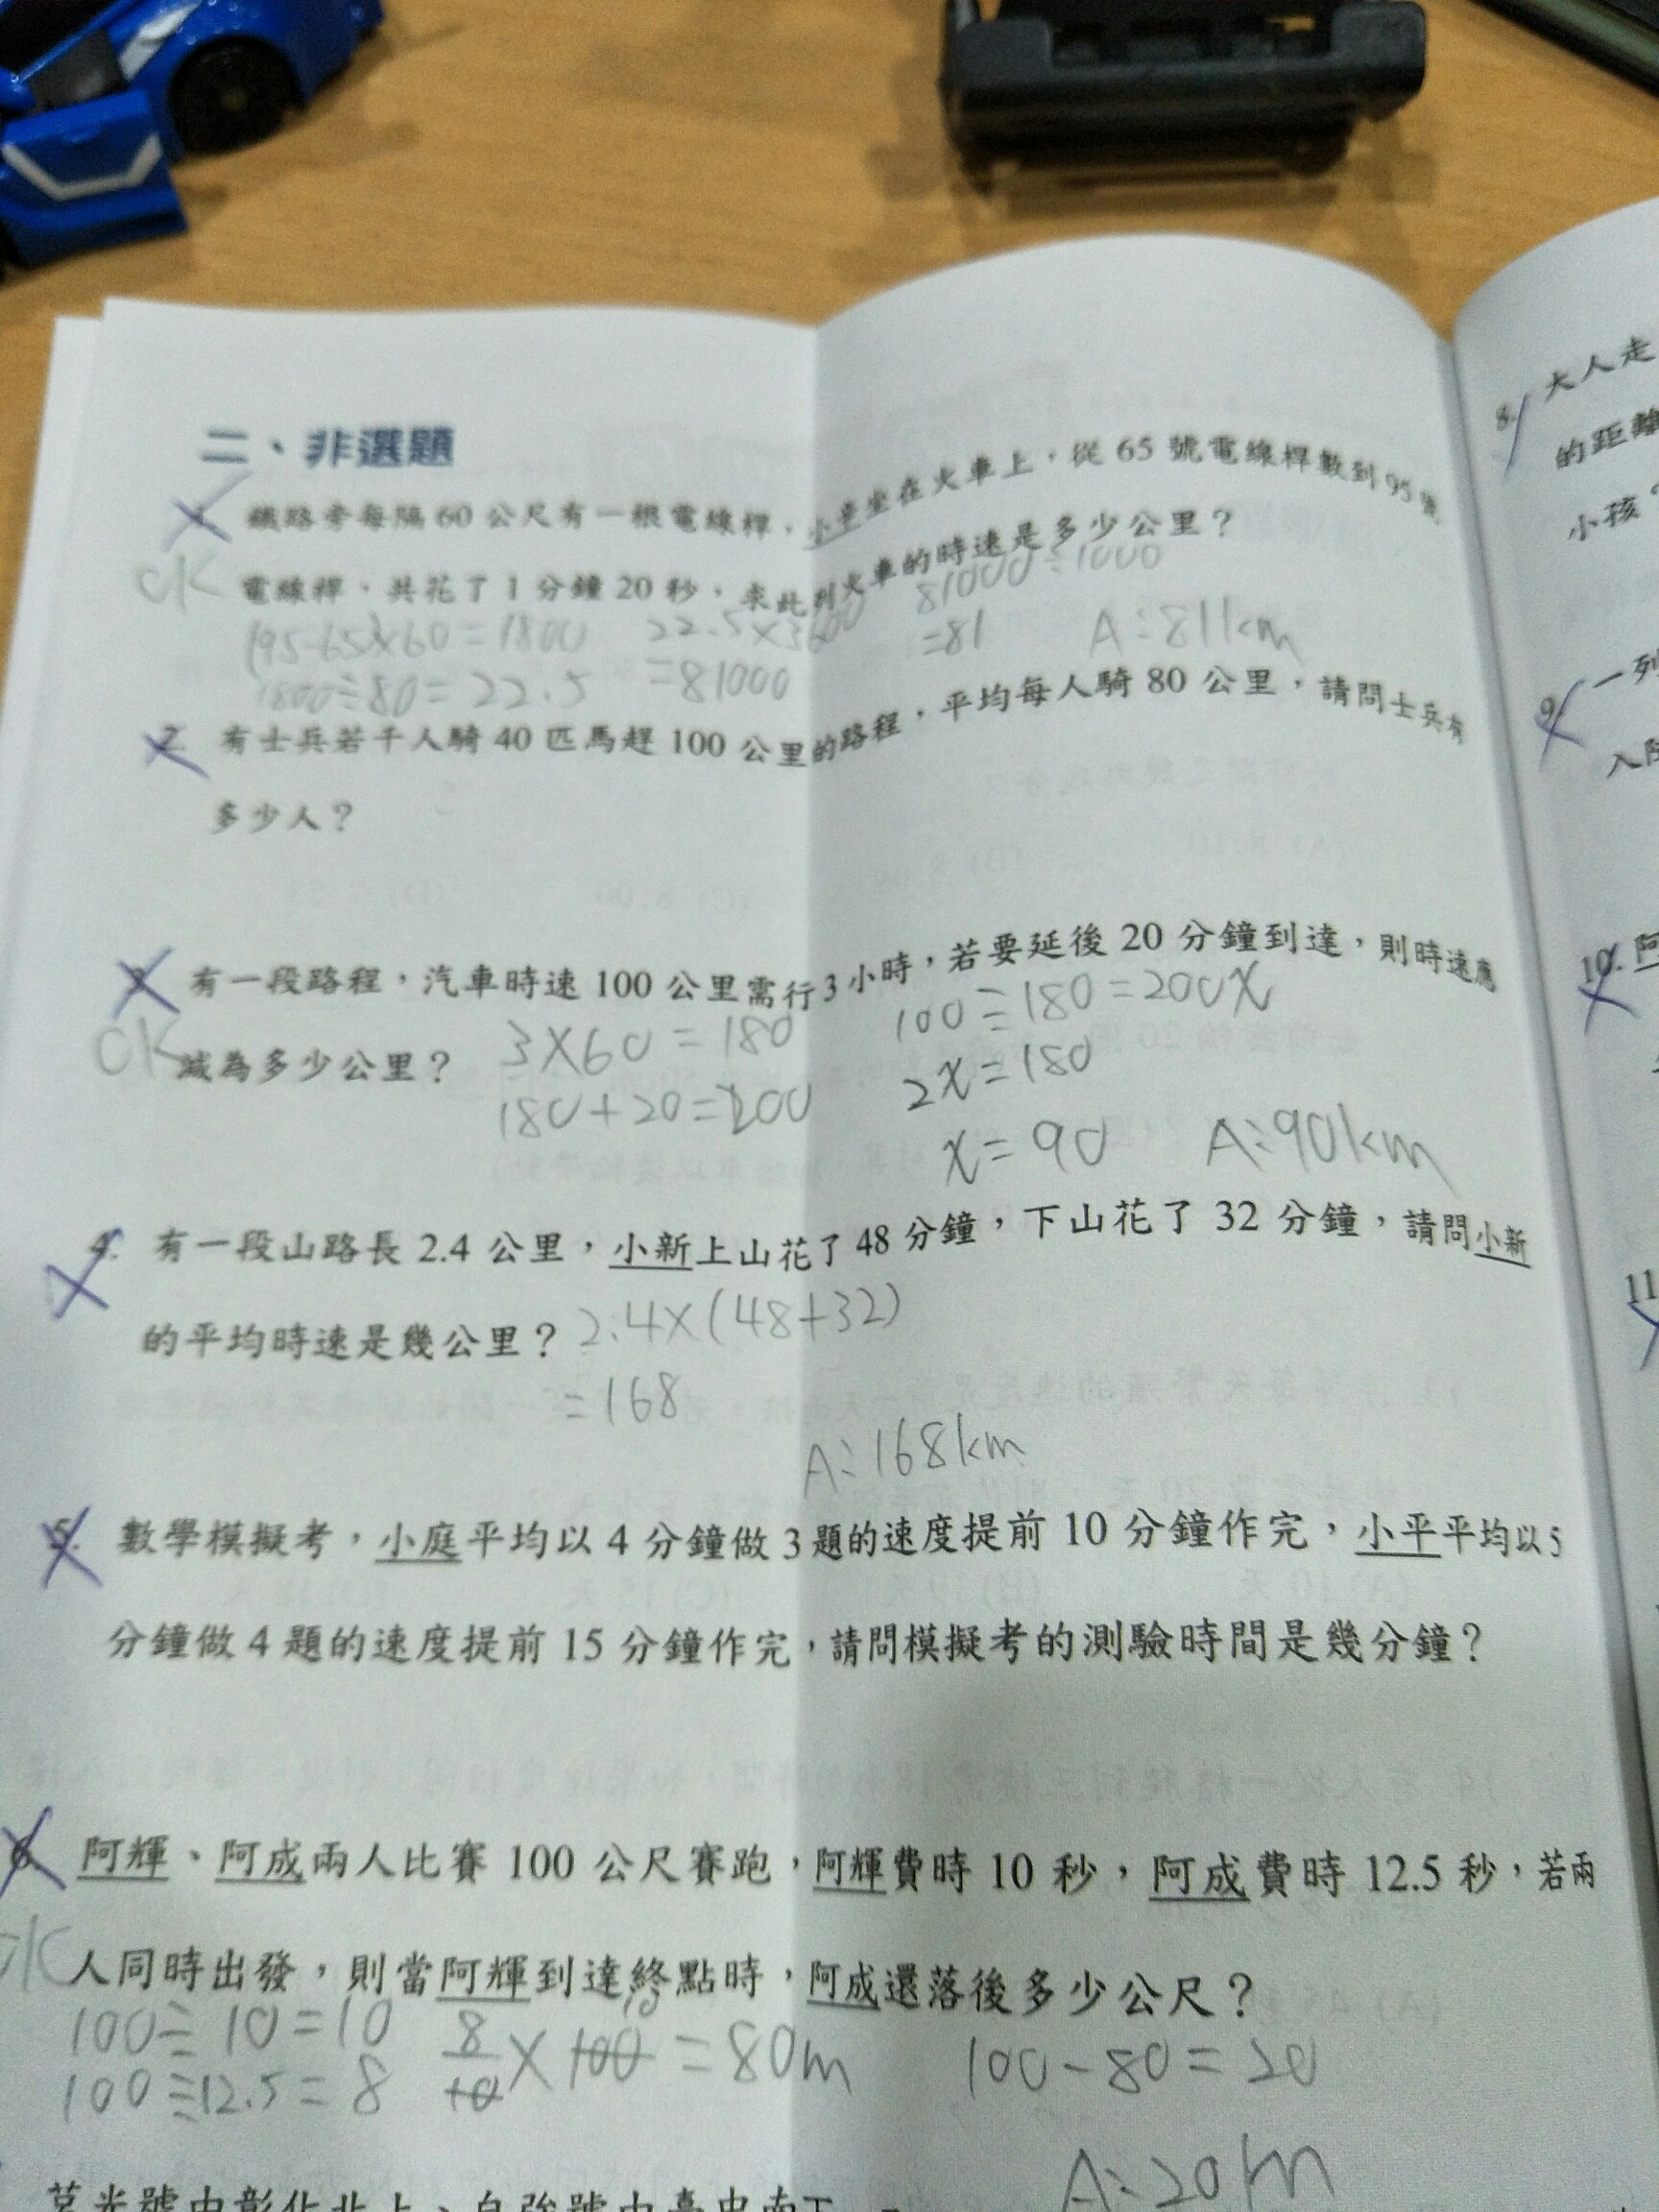 二、非選題
1. 鐵路旁每隔60公尺有一根電線桿，小華坐在火車上，從65號電線桿數到95號
OK 電線桿，共花了1分鐘20秒，求此列火車的時速是多少公里？
(95-65)×60=1800 22.5×3600 81000÷1000
1800÷80=22.5 =81000 =81 A:81km
2. 有士兵若干人騎40匹馬趕100公里的路程，平均每人騎80公里，請問士兵有
多少人？
3. 有一段路程，汽車時速100公里需行3小時，若要延後20分鐘到達，則時速應
OK 減為多少公里？ 3×60=180 100÷180=200x
180+20=200 2x=180
x=90 A:90km
4. 有一段山路長2.4公里，小新上山花了48分鐘，下山花了32分鐘，請問小新
的平均時速是幾公里？ 2.4×(48+32)
=168
A:168km
5. 數學模擬考，小庭平均以4分鐘做3題的速度提前10分鐘作完，小平平均以5
分鐘做4題的速度提前15分鐘作完，請問模擬考的測驗時間是幾分鐘？
6. 阿輝、阿成兩人比賽100公尺賽跑，阿輝費時10秒，阿成費時12.5秒，若兩
人同時出發，則當阿輝到達終點時，阿成還落後多少公尺？
100÷10=10 8/10×100=80m 100-80=20
100÷12.5=8
A:20m
莒光號由彰化北上、自強號由臺中南下
8. 大人走
的距離
小孩？
9. 一列
10. 阿
11.